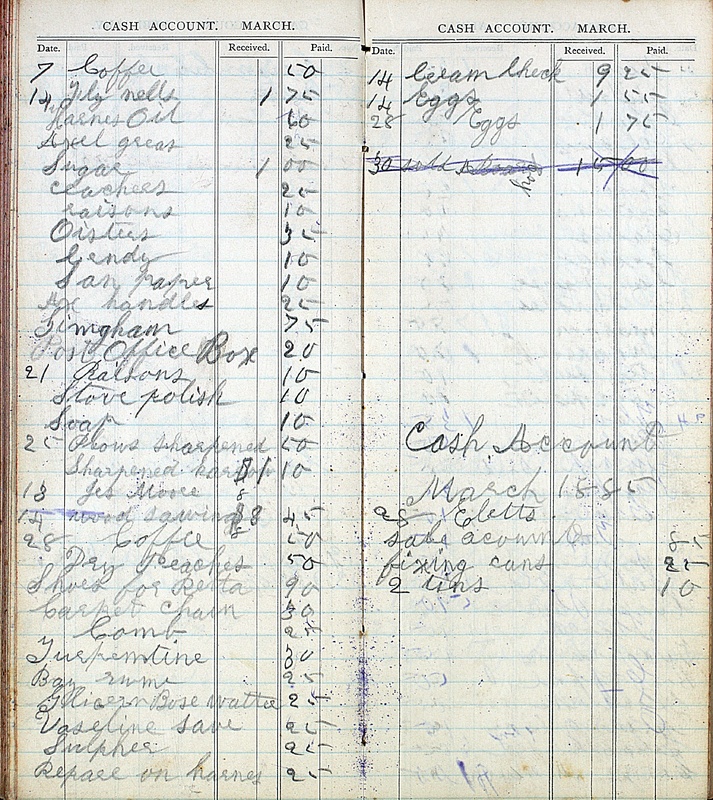 CASH ACCOUNT. MARCH.
Date. Received. Paid.
7 Coffee 50
14 Fly netts 1 75
Harnes Oil 60
Axel greas 25
Sugar 1 00
Peachees 25
raisons 10
Oisters 35
Cendy 10
San paper 10
Ax handles 25
Gimgham 75
Post Office Box 20
21 Raisons 10
Stove polish 10
Soap 10
25 Plows sharpened 50
Sharpened harrow 1 10
13 Jes Moore
14 wood sawing 8 45
28 Coffie 50
Dry Peaches 50
Shoes for Retta 90
Carpet Chain 30
Comb 25
Turpemtine 30
Bay rumi 25
Glicern Bose watter 25
Vaseline save 25
Sulpher 25
Repare on harnes 25
CASH ACCOUNT. MARCH.
Date. Received. Paid.
14 Cream Check 9 25
14 Eggs 1 55
28 Eggs 1 75
30 sold 15 00
Cash Account
March 1885
28 Eletts
sale acount 85
fixing cans 25
2 tins 10